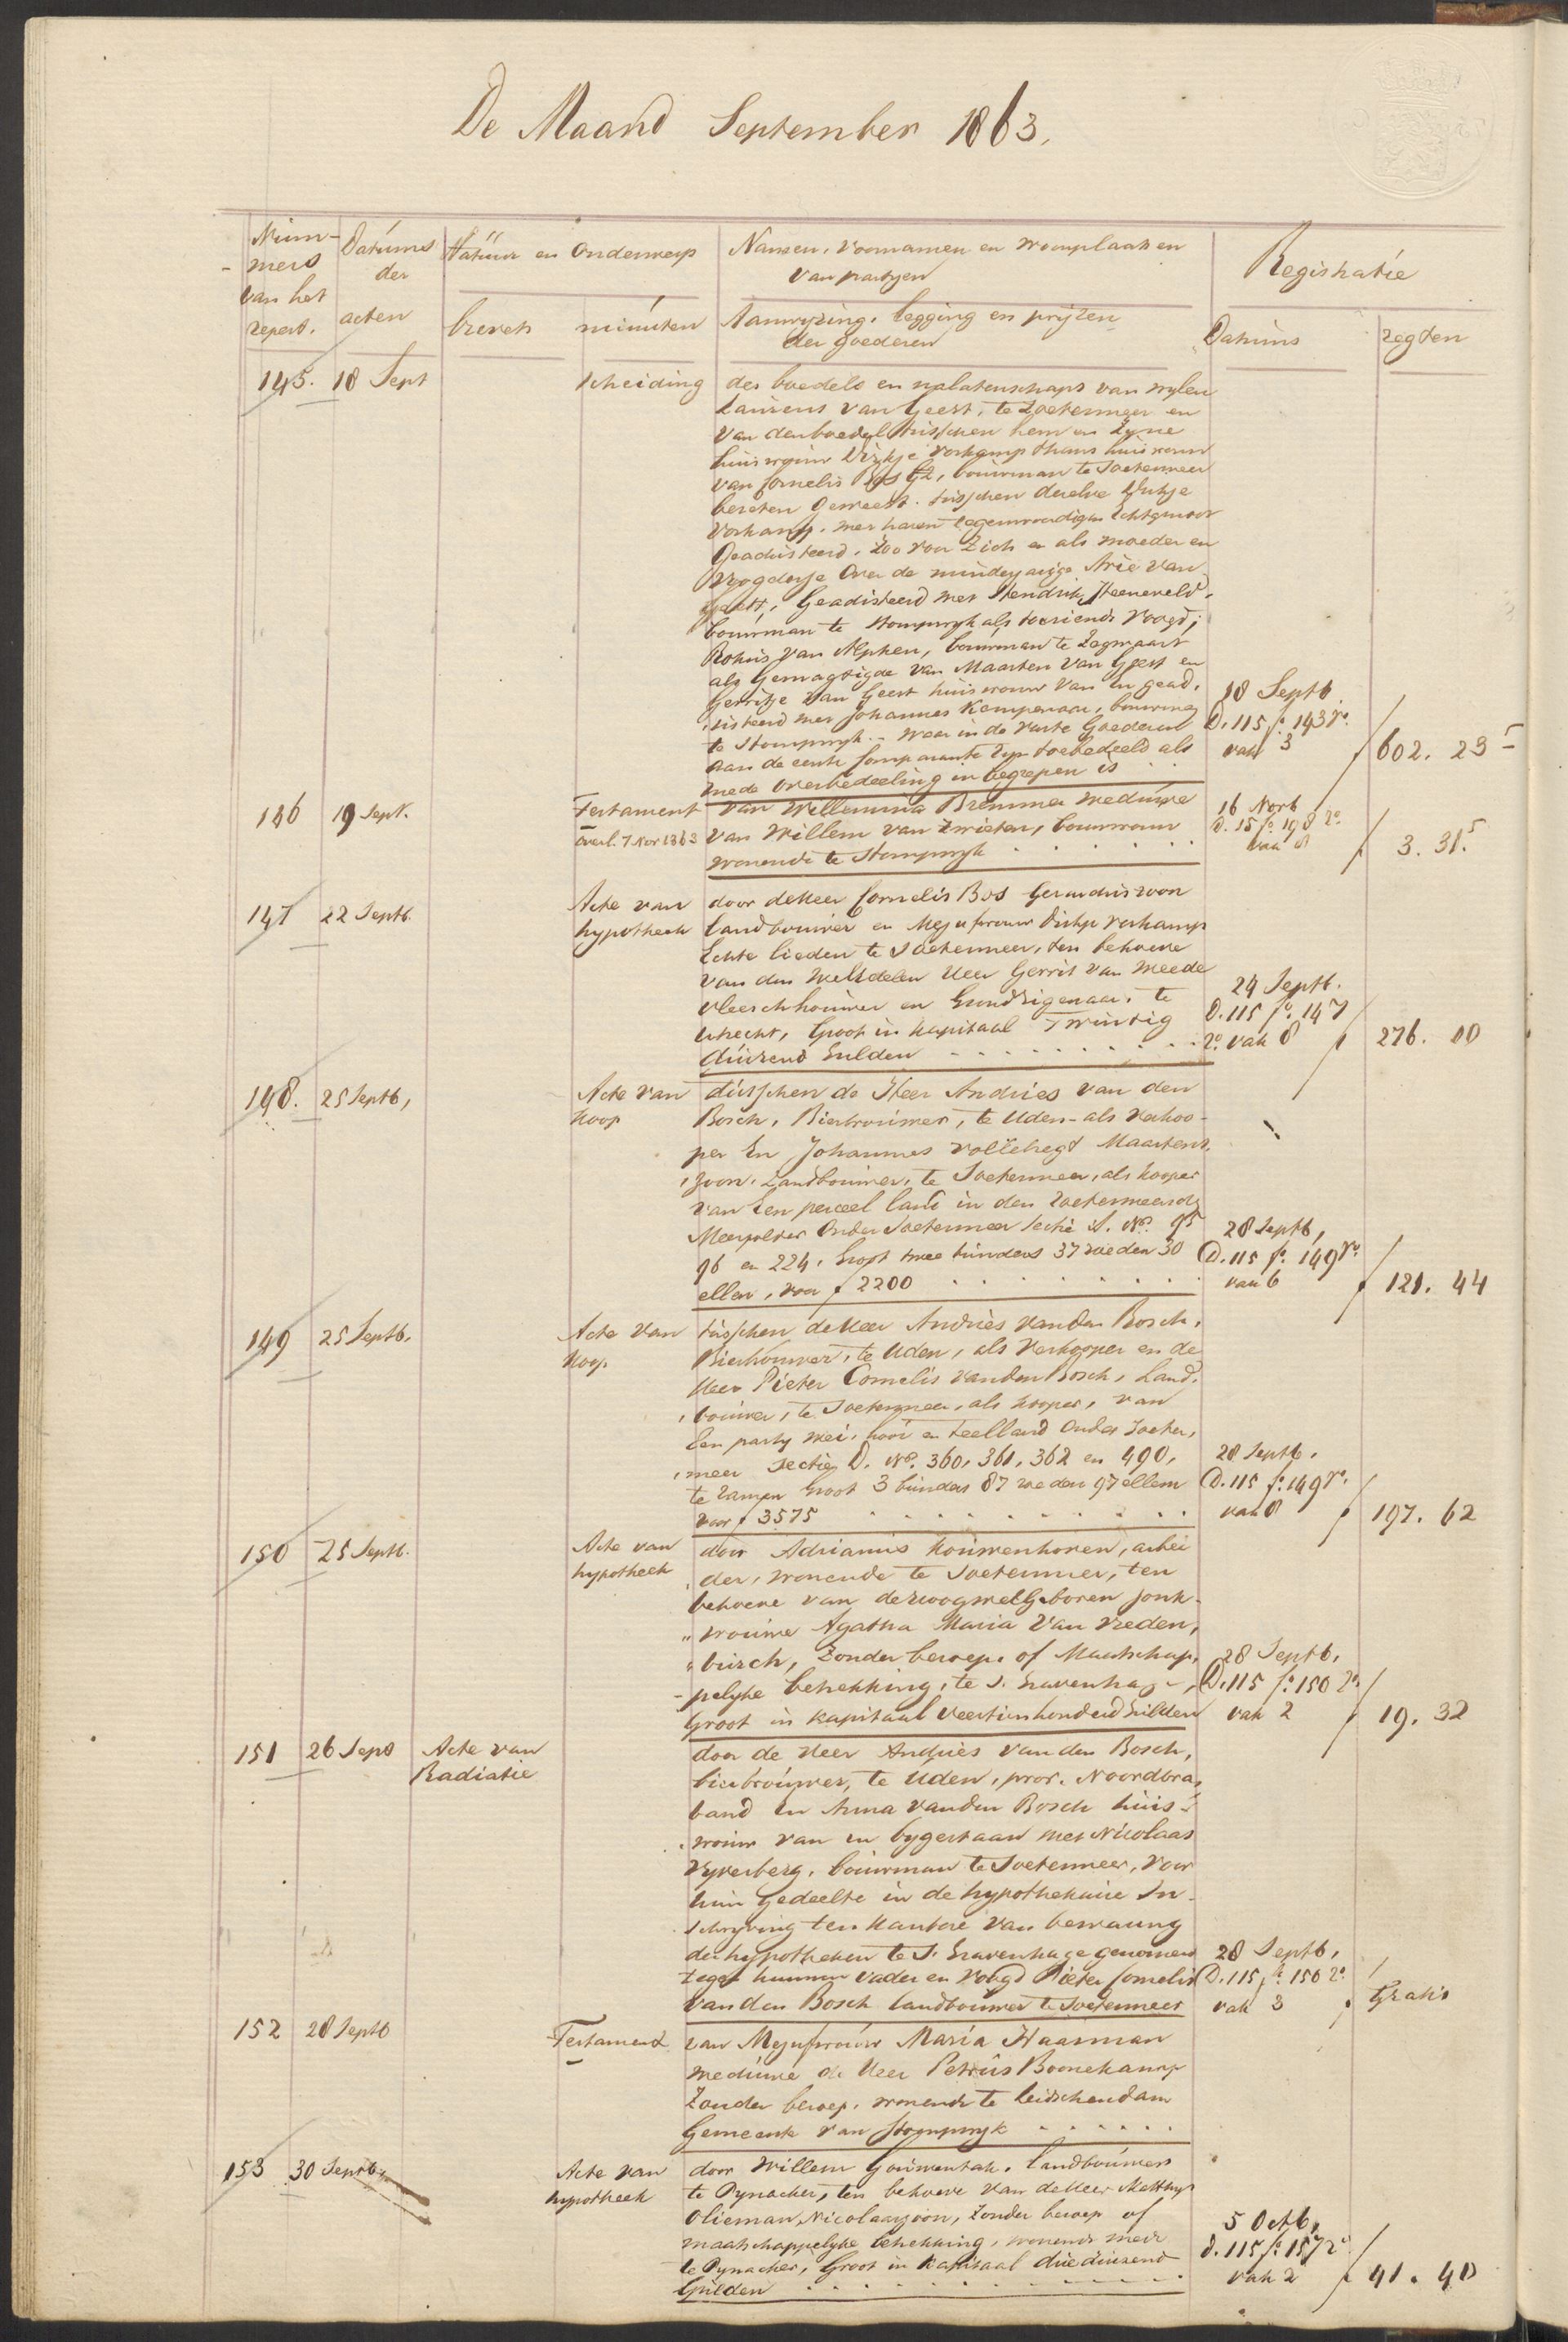 De Maand September 1863.
Num-
mers
van het
repert.
Datums
der
acten
Natuur en Onderwerp
brevets
minuten
Namen, Voornamen en woonplaatsen
van partyen
Aanwyzing, legging en pryzen
der goederen
Registratie
Datums
regten
145. 18 Sept
scheiding
des boedels en nalatenschaps van wylen
Laurens van Geest, te Zoetermeer en
van den boedel tusschen hem en zyne
huisvrouw Dirkje Verkamp thans huisvrouw
van Cornelis Bos Gz, bouwman te Soetermeer
bereten geweest. tusschen dezelve Dirkje
Verkamp, met haren tegenwoordigen Echtgenoot
Geadsisteerd, zoo voor zich en als moeder en
voogdesse over de minderjarige Arie van
Geest, Geadsisteerd met Hendrik Steeneveld,
bouwman te Stompwyk als toeziende voogd;
Rokus van Alphen, bouwman te Zegwaart
als Gemagtigde van Maarten van Geest en
Gerritje van Geest huisvrouw van en gead-
sisteerd met Johannes Kempenaar, bouwman
te Stompwyk. - waar in de vaste Goederen
aan de eerste Comparante zyn toebedeeld als
mede overbedeeling in begrepen is
18 Septb
D. 115 fo. 143 ro.
vak 3
f 602. 23 5
146 19 Sept.
Testament
overl. 7 Nov 1863
van Willemina Bremmer weduwe
van Willem van Zwieten, bouwvrouw
wonende te Stompwyk . . . . . .
16 Novb
D. 15 fo. 198 ro.
vak 8
f 3. 31. 5
147 22 Septb.
Acte van
hypotheek
door de Heer Cornelis Bos Gerardus zoon
landbouwer en Mejufvrouw Dirkje Verkamp
Echte lieden te Soetermeer, ten behoeve
van den WelEdelen Heer Gerrit van Weede
vleeschhouwer en Grondeigenaar, te
Utrecht, Groot in kapitaal Twintig
duizend Gulden . . . . . . . . .
24 Septb.
D. 115 fo. 147
ro. vak 8
f 276. 00
148. 25 Septb,
Acte van
Koop
tusschen de Heer Andries van den
Bosch, Bierbrouwer, te Uden - als verkoo-
per En Johannes Vollebregt Maartens,
zoon, Landbouwer, te Soetermeer, als kooper
van Een perceel land in den Zoetermeersche
Meerpolder Onder Soetermeer Sectie A. No. 95
96 en 224, Groot twee bunders 37 roeden 30
ellen, voor f 2200 . . . . . . . . .
28 Septb,
D. 115 fo. 149 ro.
vak 6
f 121. 44
149 25 Septb.
Acte van
Koop
tusschen de Heer Andries van den Bosch,
Bierbrouwer, te Uden, als Verkooper en de
Heer Pieter Cornelis van den Bosch, Land-
bouwer, te Soetermeer, als kooper, van
Een party wei, hooi en teelland onder Soeter,
meer Sectie D. No. 360, 361, 362 en 490,
te zamen Groot 3 bunders 87 roeden 97 ellen
voor f 3575 . . . . . . . . . .
28 Septb.
D. 115 fo. 149 ro.
vak 8
f 197. 62
150 25 Septb.
Acte van
hypotheek
door Adrianus Kouwenhoven, arbei
der, wonende te Soetermeer, ten
behoeve van de HoogwelGeboren jonk-
„ vrouwe Agatha Maria van Vreden,
„ burch, Zonder beroep of Maatschap,
- pelyke betrekking, te s. Gravenhage,
Groot in kapitaal veertienhonderd Gulden
28 Septb,
D. 115 fo. 150 ro.
vak 2
f 19. 32
151 26 Sept
Acte van
Radiatie
door de Heer Andries van den Bosch,
bierbrouwer, te Uden, prov. Noordbra,
band En Anna van den Bosch huis-
vrouw van en bygestaan met Nicolaas
Vyverberg, bouwman te Soetermeer, voor
hun gedeelte in de hypothekaire In-
schryving ten kantore van bewaring
der hypotheken te S. Gravenhage genomen
tegen hunnen vader en voogd Pieter Cornelis
van den Bosch landbouwer te Soetermeer
28 Septb,
D. 115 fo. 150 ro.
vak 3
Gratis
152 28 Septb
Testament
van Mejufvrouw Maria Haasman
weduwe de Heer Petrus Boonekamp
Zonder beroep, wonende te Leidschendam
Gemeente van Stompwyk . . . . . .
153 30 Septb,
Acte van
hypotheek
door Willem Gouwentak, Landbouwer
te Pynacker, ten behoeve van de Heer Matthys
Olieman, Nicolaaszoon, Zonder beroep of
maatschappelyke betrekking, wonende mede
te Pynacker, Groot in kapitaal drie duizend
Gulden . . . . . . . . . . . .
5 Octb,
D. 115 fo. 157 ro
vak 2
f 41. 40